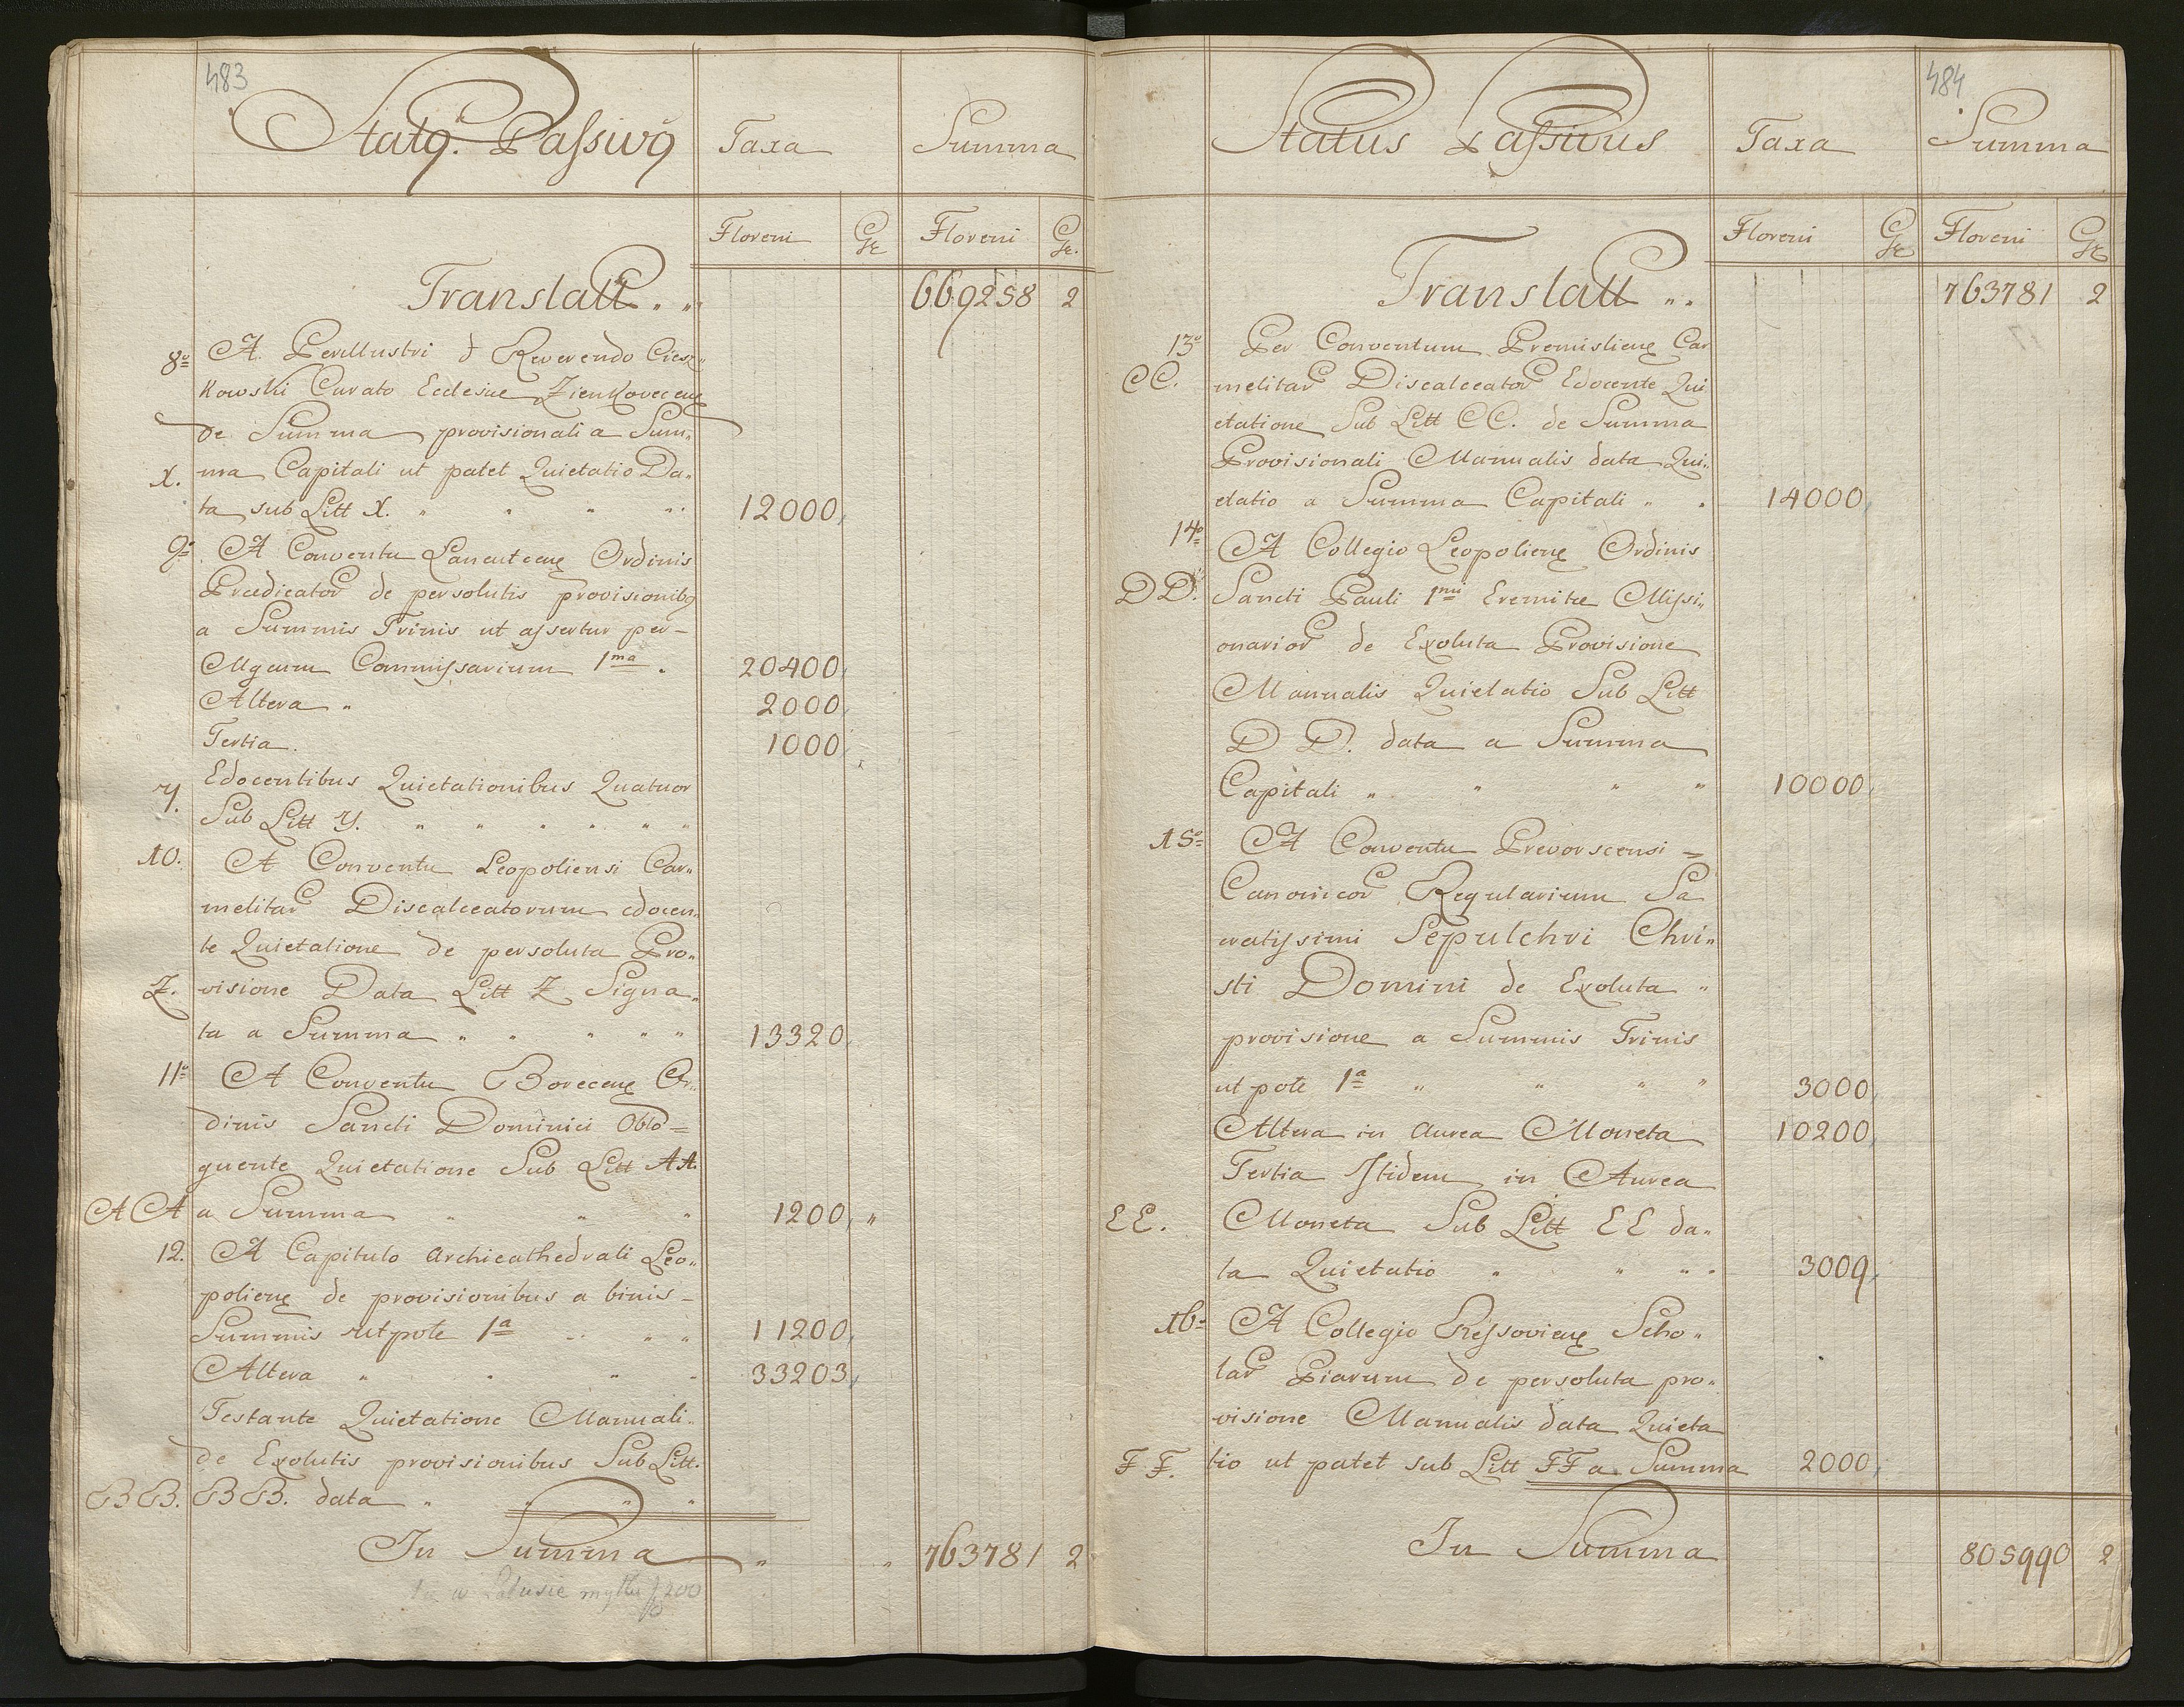 483
Statꝰ. Passivꝰ Taxa Summa
Floreni Gr Floreni Gr.
Translatt. „ 669258 2
8º A. Perillustri & Reverendo Ciesz„
kowski Curato Ecclesiae Zienkovecens
de Summa provisionali a Sum„
X. ma Capitali ut patet Quietatio Da„
ta sub Litt X. „ „ „ „ 12000,
9º A Conventu Lancutcens Ordinis
Praedicator de persolutis provisionibꝰ
a Summis Trinis ut assertur per-
Mgcum Commissarium 1ma. 20400,
Altera „ 2000,
Tertia. 1000,
Edocentibus Quietationibus Quatuor
Y. Sub Litt Y. „ „ „ „ „ „
10. A Conventu Leopoliensi Car„
melitar Discalceatorum edocen„
te Quietatione de persoluta Pro„
Z. visione Data Litt Z Signa„
ta a Summa „ „ „ „ „ 13320,
11º A Conventu Borecens Or„
dinis Sancti Dominici Oblo=
quente Quietatione Sub Litt AA.
AA a Summa „ „ „ 1200, „
12. A Capitulo Archicathedrali Leo„
poliens de provisionibus a binis-
Summis utpote 1a „ „ „ 11200,
Altera „ „ „ „ 33203,
Testante Quietatione Manuali„
de Exolutis provisionibus Sub Litt.
BB. BB. data „ „ „ „
In Summa „ „ 763781 2
200
484
Status Passivus Taxa Summa
Floreni Gr Floreni Gr
Translatt „ 763781 2
13º Per Conventum Premisliens Car
CC. melitar Discalceator Edocente Qui
etatione Sub Litt CC. de Summa
Provisionali Manualis data Qui„
etatio a Summa Capitali „ „ 14000,
14º A Collegio Leopoliens Ordinis
DD. Sancti Pauli 1mi Eremitae Missi„
onarior de Exoluta Provisione
Manualis Quietatio Sub Litt
DD. data a Summa
Capitali „ „ „ „ 10000,
15º A Conventu Prevorscensi =
Canonicor Regularium Sa
cratissimi Sepulchri Chri„
sti Domini de Exoluta „
provisione a Summis Trinis
ut pote 1a „ „ „ „ 3000,
Altera in Aurea Moneta 10200,
Tertia Itidem in Aurea
EE. Moneta Sub Litt EE da„
ta Quietatio „ „ „ „ 3009,
16º A Collegio Ressoviens Scho„
lar Piarum de persoluta pro„
visione Manualis data Quieta
FF. tio ut patet sub Litt FF a Summa 2000,
In Summa 805990 2